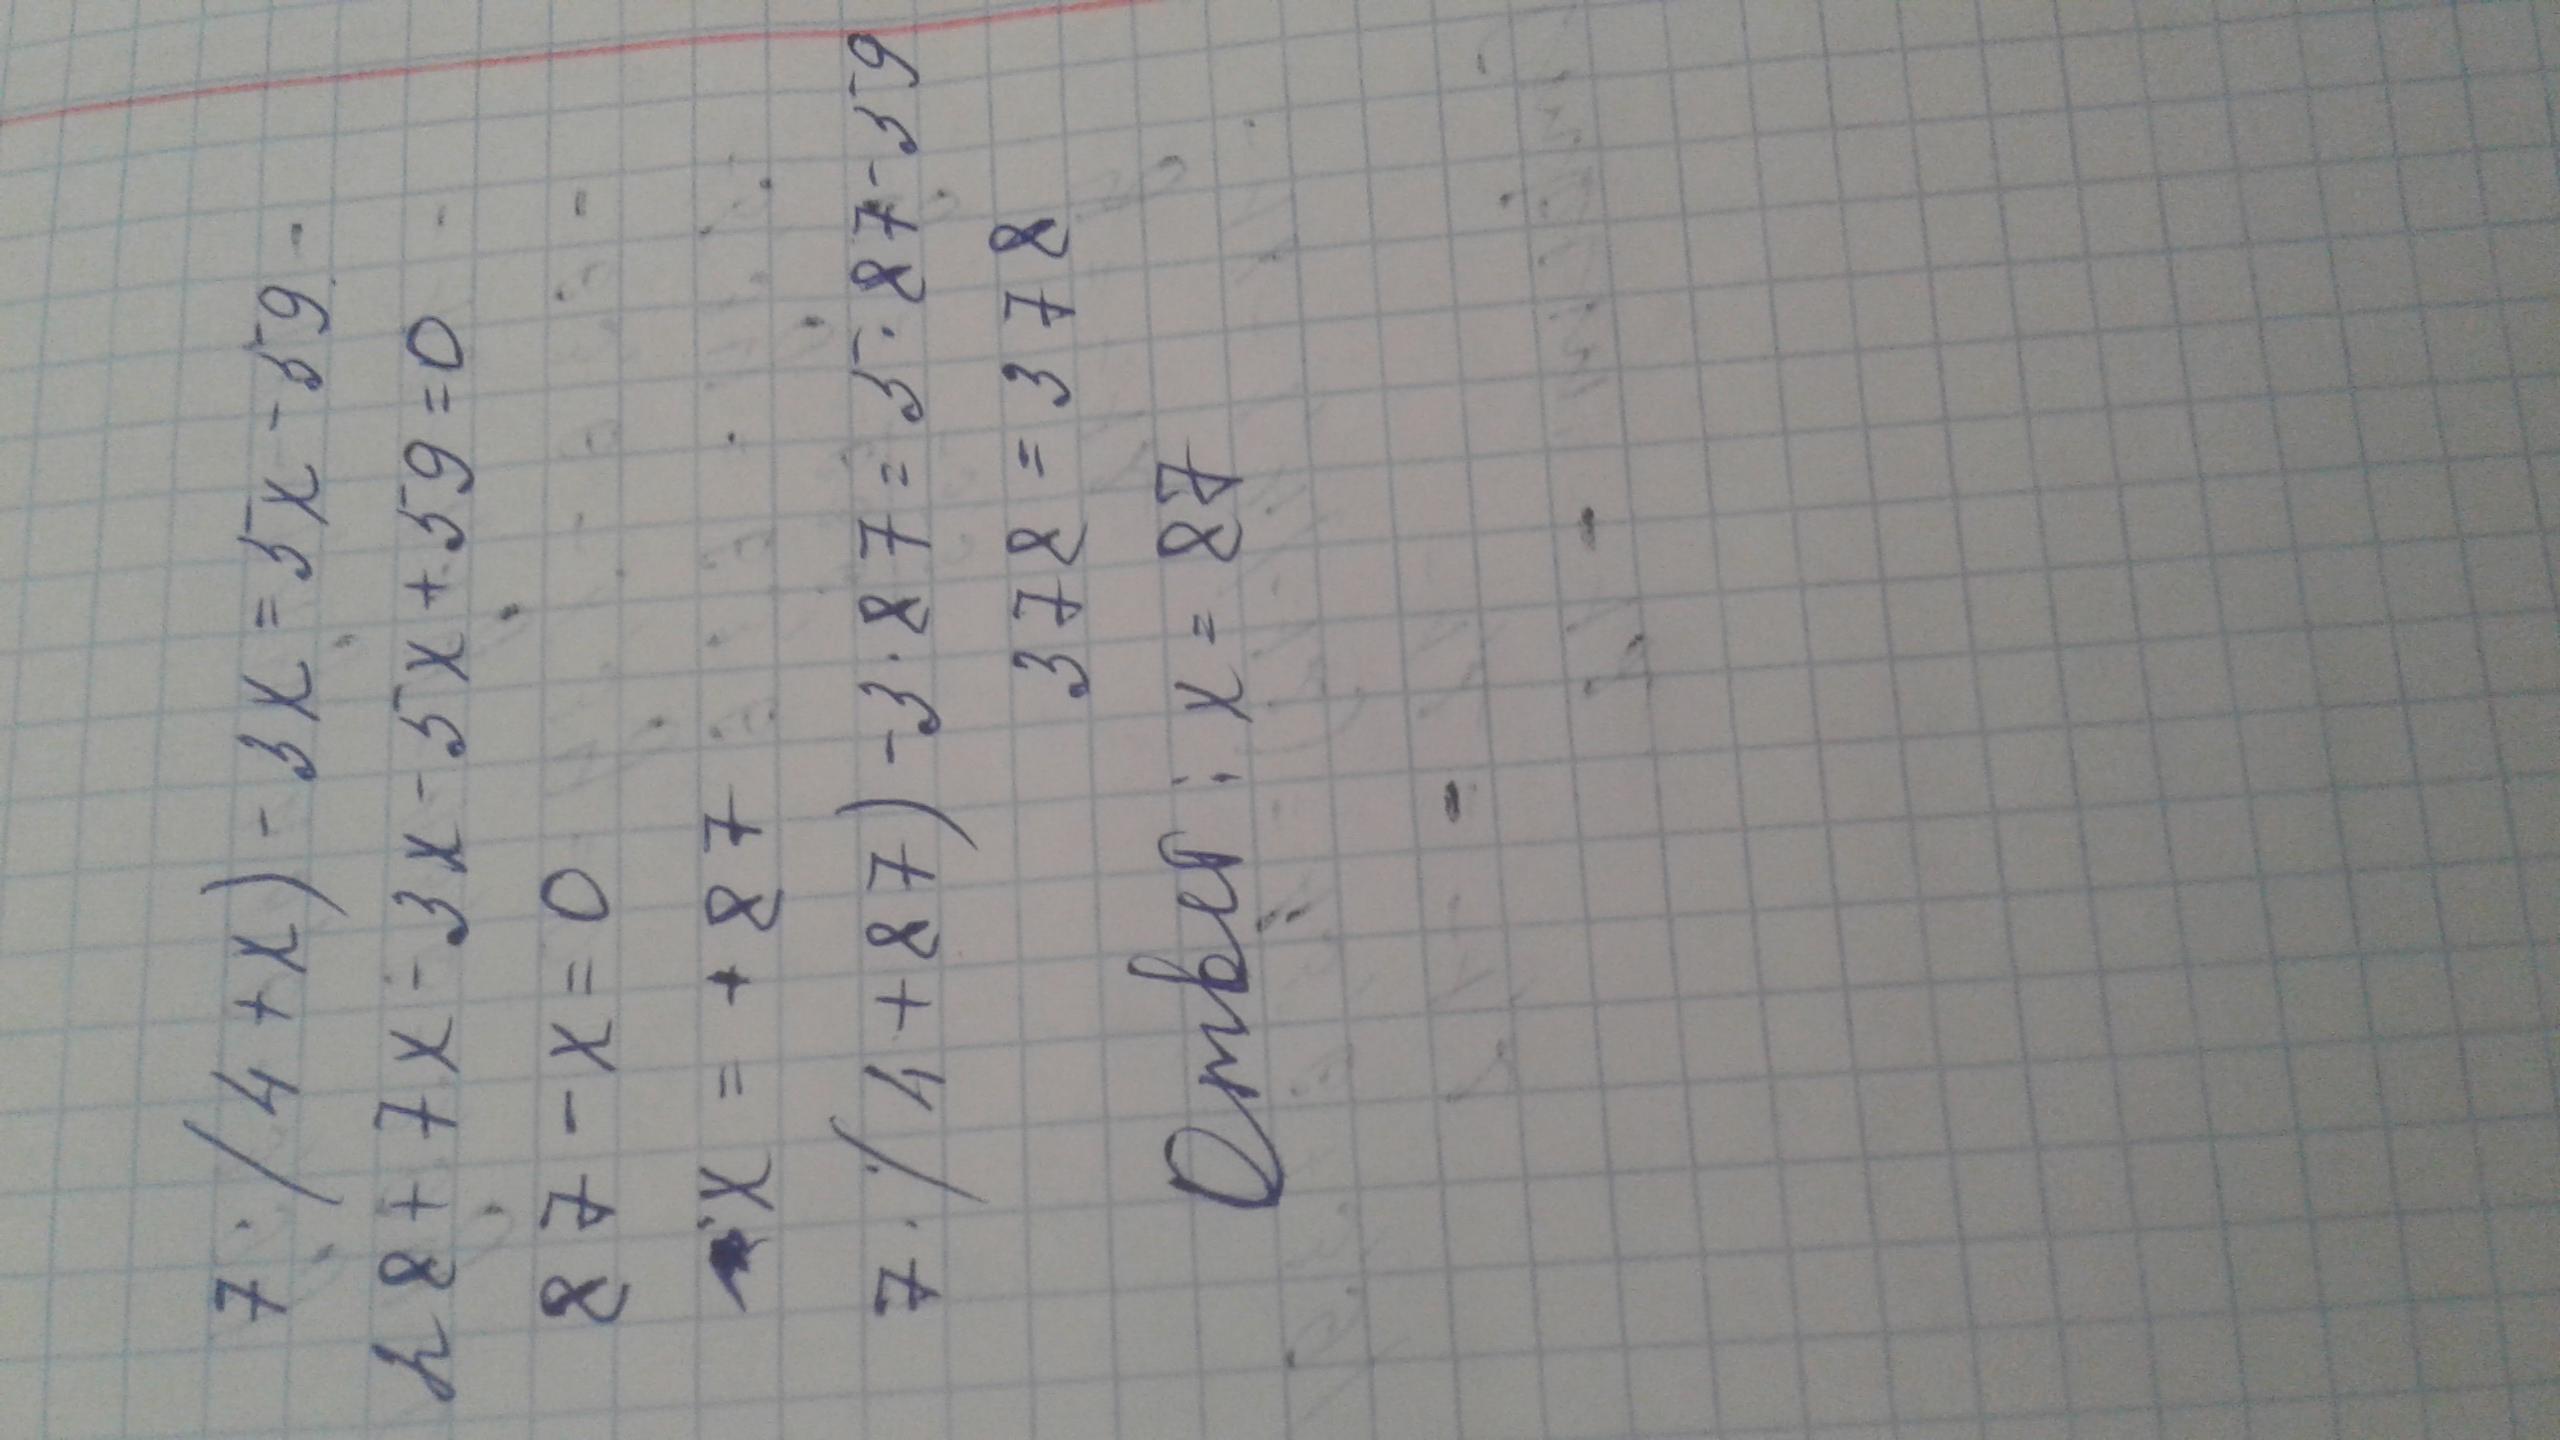 7·(4+x)-3x=5x-59
28+7x-3x-5x+59=0
87-x=0
x=+87
7·(4+87)-3·87=5·87-59
378=378
Ответ: x=87